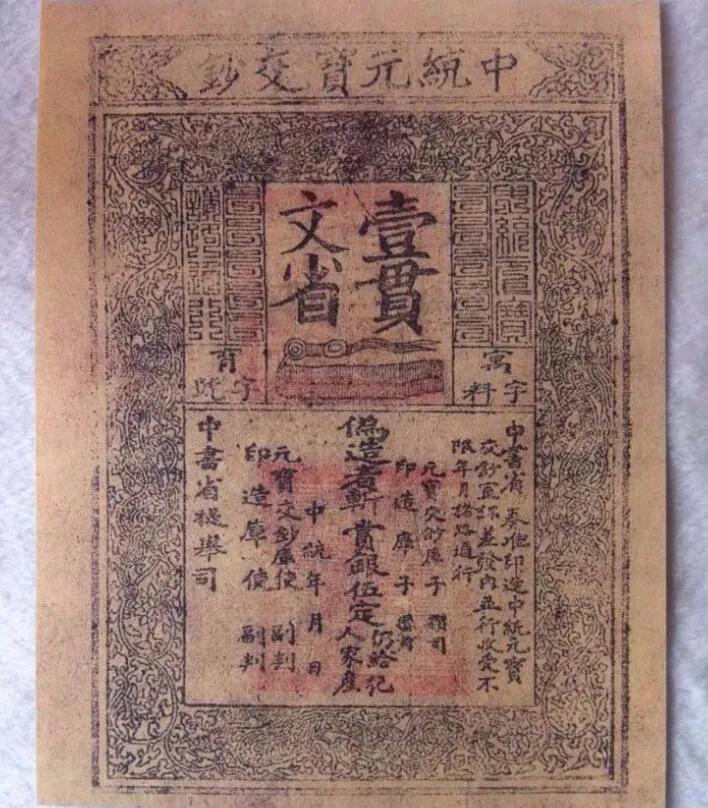 中統元寶交鈔
壹貫
文省
中統元寶
諸路通行
寓
字料
育
字號
中書省 奏准印造中統元寶
交鈔宣課差發內並行收受不
限年月諸路通行
元寶交鈔庫子 攢司
印造庫子 攢司
偽造者斬 賞銀伍定 仍給犯人家產
中統年月日
元寶交鈔庫使 副判
印造庫使 副判
中書省提舉司